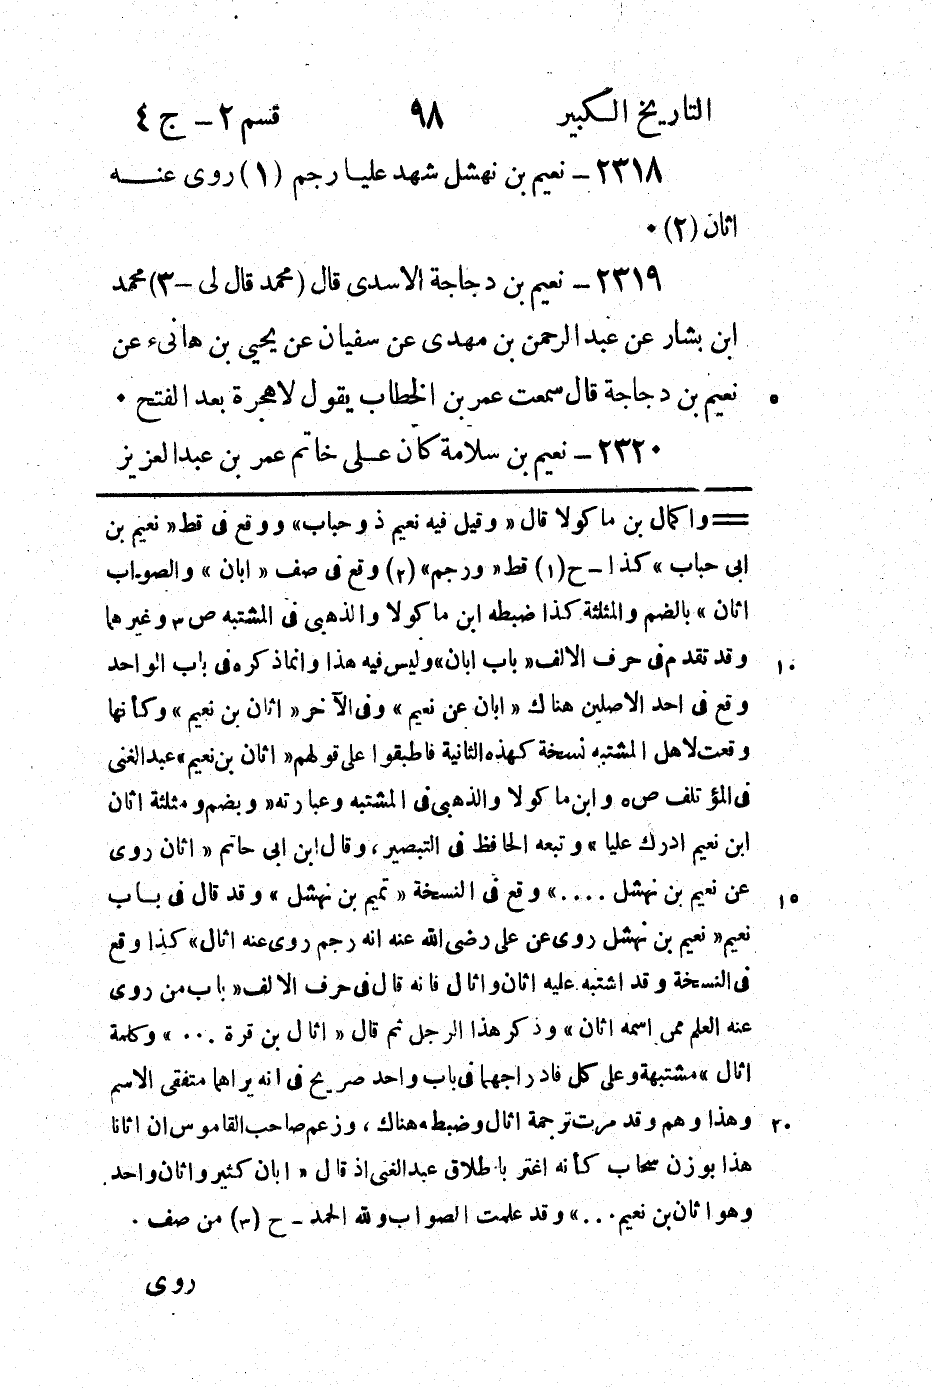 التاريخ الكبير ٩٨ قسم ٢ - ج ٤
٢٣١٨ - نعيم بن نهشل شهد عليا رجم (١) روى عنه
اثان (٢) ٠
٢٣١٩ - نعيم بن دجاجة الاسدى قال (محمد قال لى - ٣) محمد
ابن بشار عن عبد الرحمن بن مهدى عن سفيان عن يحيى بن هانىء عن
نعيم بن دجاجة قال سمعت عمر بن الخطاب يقول لا هجرة بعد الفتح ٠ ٥
٢٣٢٠ - نعيم بن سلامة كان على خاتم عمر بن عبد العزيز
= واكمال بن ماكولا قال « وقيل فيه نعيم ذو حباب » ووقع فى قط « نعيم بن
ابى حباب » كذا - ح (١) قط « ورجم » (٢) وقع فى صف « ابان » والصواب
اثان » بالضم والمثلثة كذا ضبطه ابن ماكولا والذهبى فى المشتبه ص ٣ وغيرهما
وقد تقدم فى حرف الالف « باب ابان » وليس فيه هذا وانما ذكره فى باب الواحد ١٠
وقع فى احد الاصلين هناك « ابان عن نعيم » وفى الآخر « اثان بن نعيم » وكأنها
وقعت لاهل المشتبه نسخة كهذه الثانية فاطبقوا على قولهم « اثان بن نعيم » عبد الغنى
فى المؤتلف ص ٥ وابن ماكولا والذهبى فى المشتبه وعبارته « وبضم ومثلثة اثان
ابن نعيم ادرك عليا » وتبعه الحافظ فى التبصير ، وقال ابن ابى حاتم « اثان روى
عن نعيم بن نهشل .... » وقع فى النسخة « تميم بن نهشل » وقد قال فى باب ١٥
نعيم « نعيم بن نهشل روى عن على رضى الله عنه انه رجم روى عنه اثال » كذا وقع
فى النسخة وقد اشتبه عليه اثان واثال فانه قال فى حرف الالف « باب من روى
عنه العلم ممن اسمه اثان » وذكر هذا الرجل ثم قال « اثال بن قرة ... » وكلمة
اثال » مشتبهة وعلى كل فادراجهما فى باب واحد صريح فى انه يراهما متفقى الاسم
وهذا وهم وقد مرت ترجمة اثال وضبطه هناك ، وزعم صاحب القاموس ان اثانا ٢٠
هذا بوزن سحاب كأنه اغتر باطلاق عبد الغنى اذ قال « ابان كثير واثان واحد
وهو اثان بن نعيم ... » وقد علمت الصواب ولله الحمد - ح (٣) من صف ٠
روى